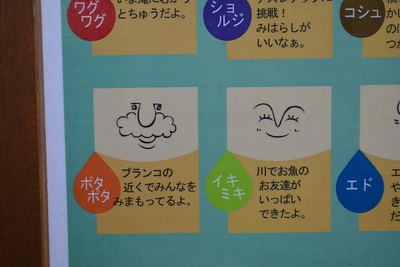 ワグ
ワグ
とちゅうだよ。
ショ
ルジ
挑戦！
みはらしが
いいなぁ。
コシュ
ポタ
ポタ
ブランコの
近くでみんなを
みまもってるよ。
イキ
ミキ
川でお魚の
お友達が
いっぱい
できたよ。
エド